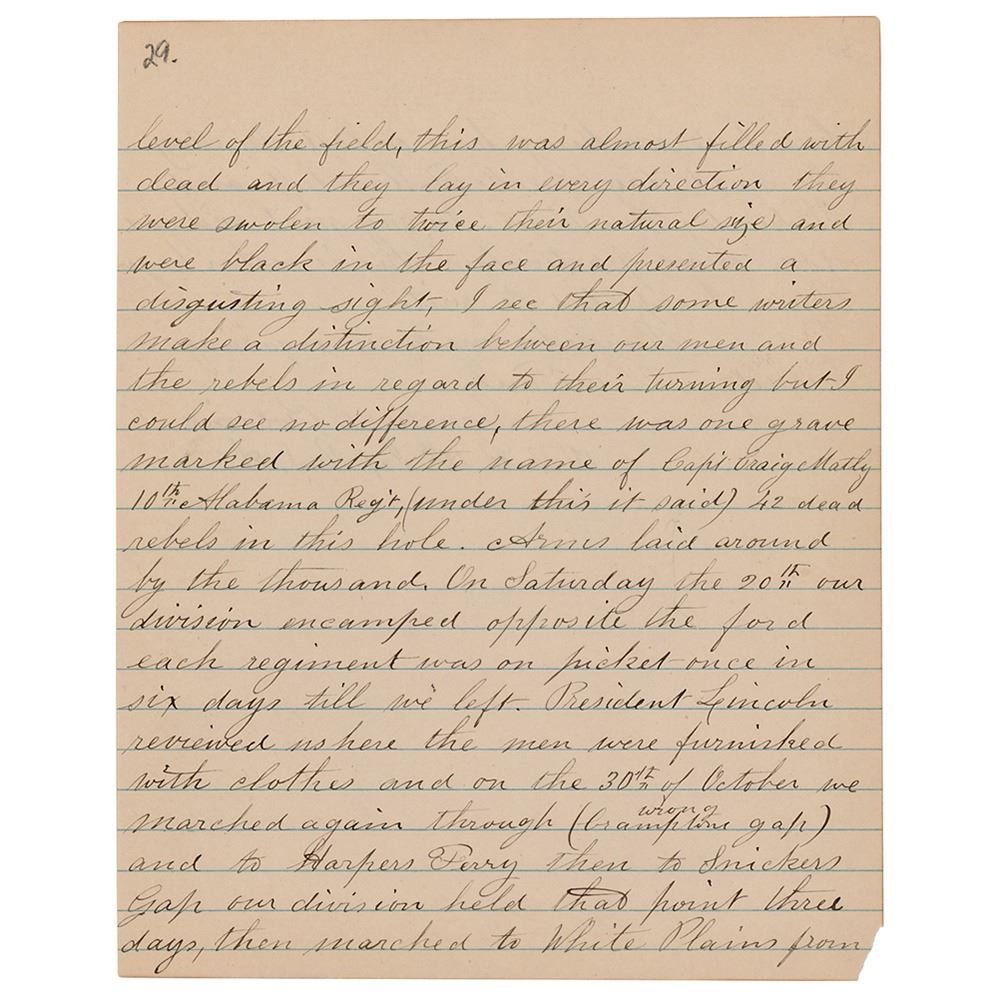 29.
level of the field, this was almost filled with
dead and they lay in every direction they
were swolen to twice their natural size and
were black in the face and presented a
disgusting sight, I see that some writers
make a distinction between our men and
the rebels in regard to their turning but I
could see no difference, there was one grave
marked with the name of Capt Craig Matly
10th Alabama Regt, (under this it said) 42 dead
rebels in this hole. Arms laid around
by the thousand. On Saturday the 20th our
division encamped opposite the ford
each regiment was on picket once in
six days till we left. President Lincoln
reviewed us here the men were furnished
with clothes and on the 30th of October we
wrong
marched again through (Cramptons gap)
and to Harpers Ferry then to Snickers
Gap our division held that point three
days, then marched to White Plains from